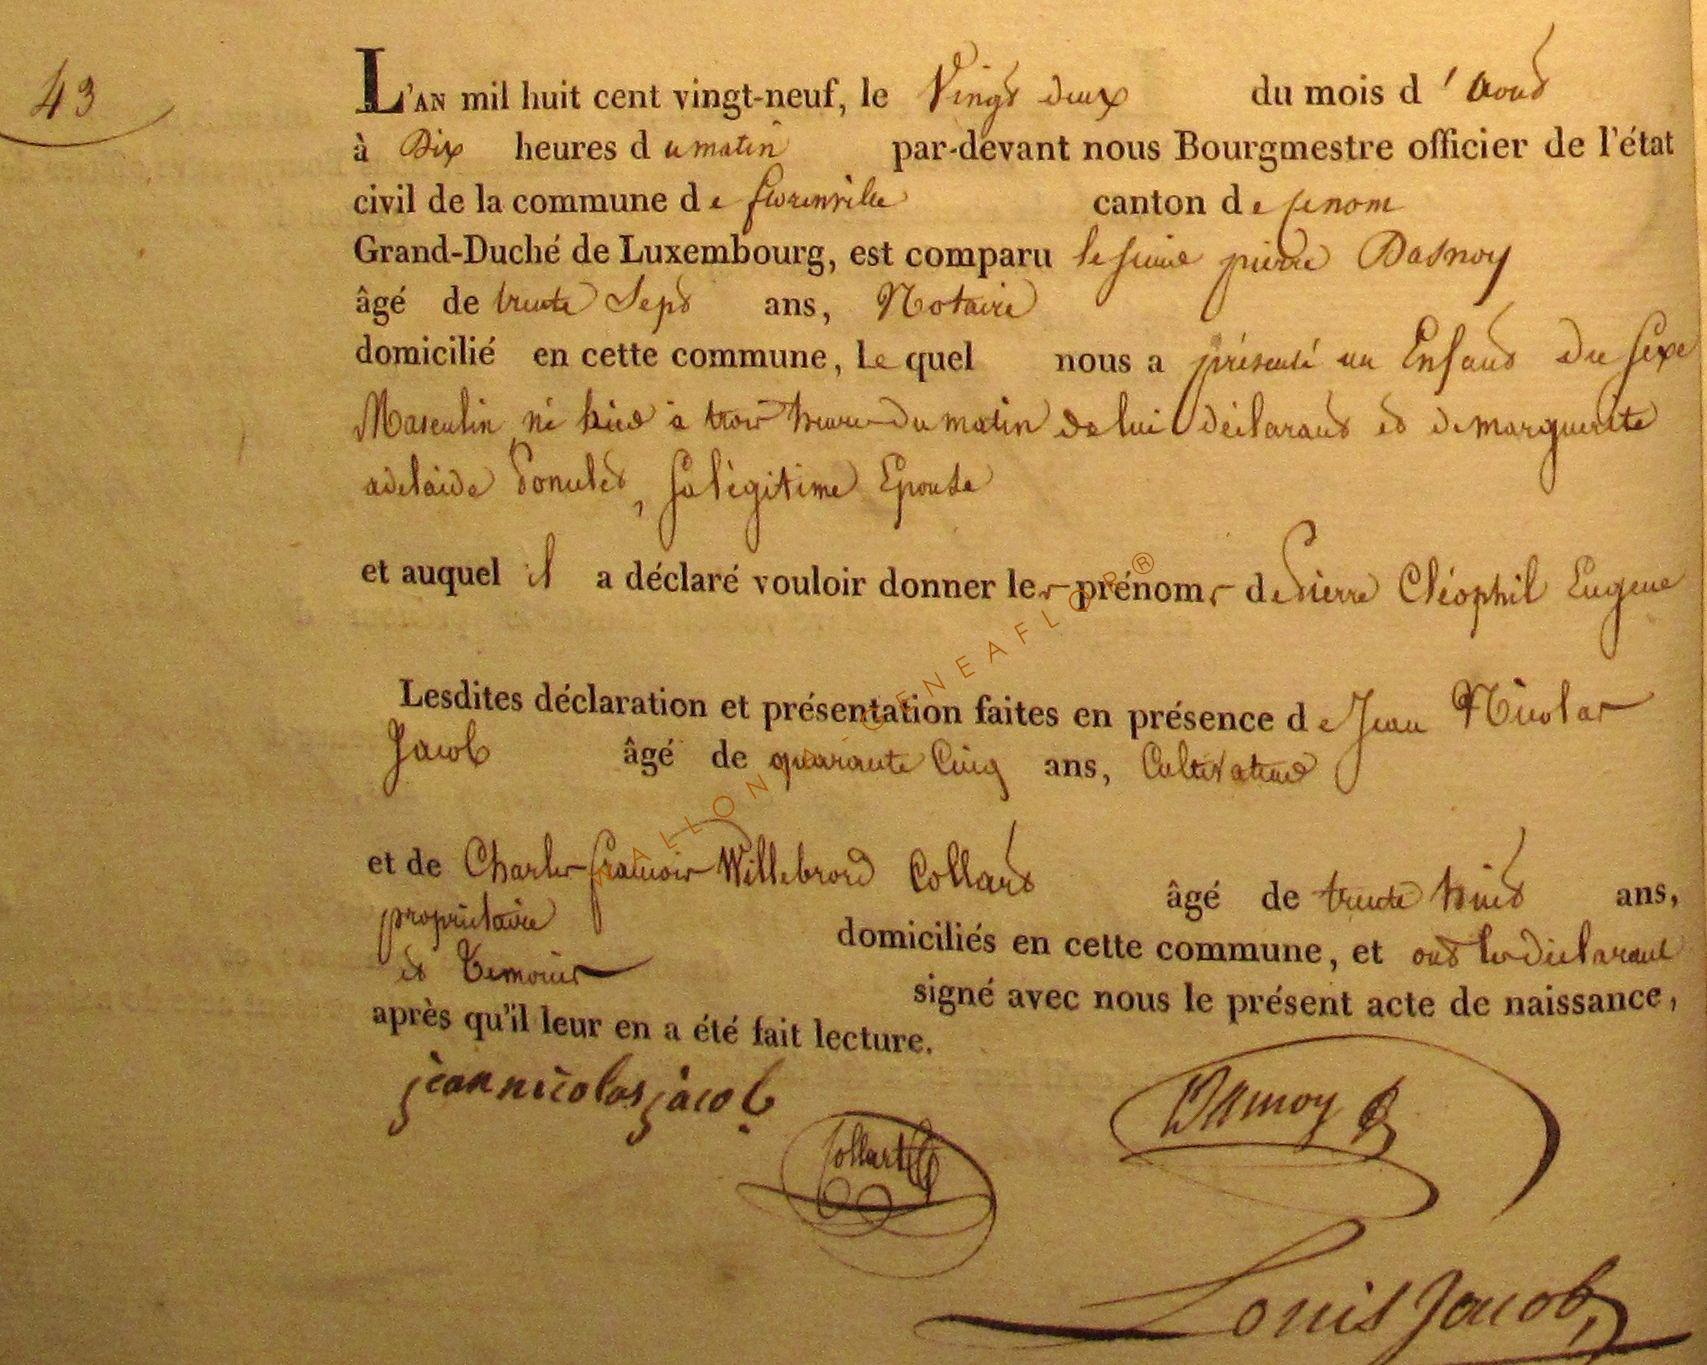 43
L'AN mil huit cent vingt-neuf, le Vingt deux du mois d'aout
à Dix heures du matin par-devant nous Bourgmestre officier de l'état
civil de la commune de florenville canton de
Grand-Duché de Luxembourg, est comparu le sieur pierre Dasnoy
âgé de trente Sept ans, Notaire
domicilié en cette commune, le quel nous a présenté un Enfant du sexe
Masculin né hier à trois heures du matin de lui déclarant et de marguerite
adelaide sa légitime Epouse
et auquel il a déclaré vouloir donner les prénoms de Pierre Cléophil Eugene
Lesdites déclaration et présentation faites en présence de Jean Nicolas
Jacob âgé de quarante Cinq ans, Cultivateur
et de Charles françois Willebrord Collart âgé de trente huit ans,
propriétaire domiciliés en cette commune, et ont les déclarant
et Temoins signé avec nous le présent acte de naissance,
après qu'il leur en a été fait lecture.
jean nicolas jacob
Collart
Dasnoy
Louis Jacob
WALLONIA GENEAFLOR®